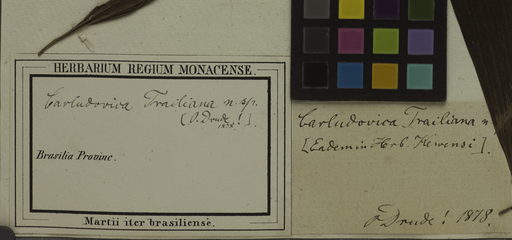 HERBARIUM REGIUM MONACENSE.
Carludovica Trailiana n. sp.
[O. Drude! 1878.].
Brasilia Provinc.
Martii iter brasiliense.
Carludovica Trailiana n
[Eadem in Herb. Kewensi].
Drude! 1878.